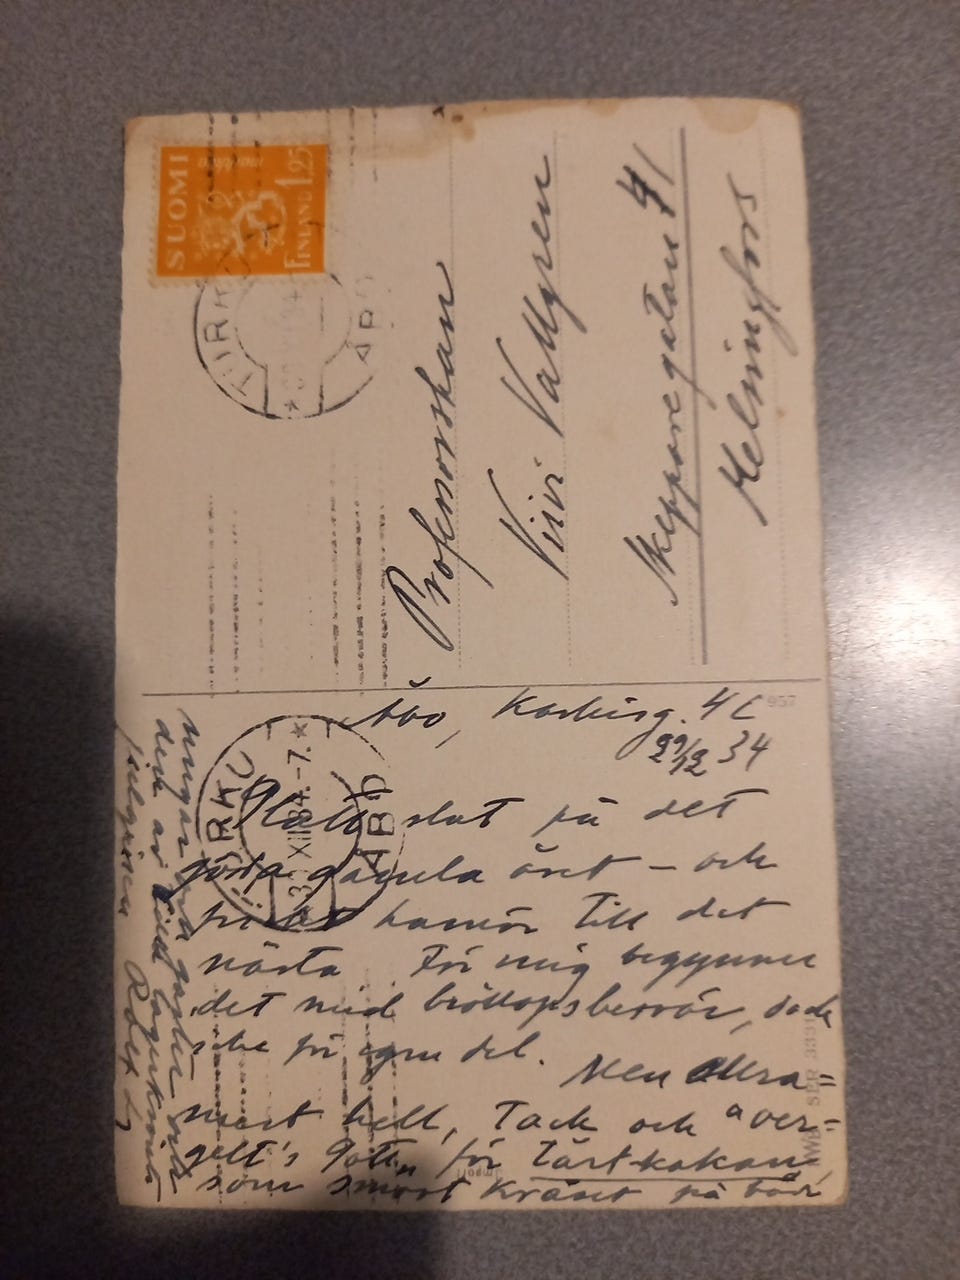 SUOMI
markkaa
FINLAND 1.25
TURKU
ÅBO
Professorskan
Viivi Vallgren
Skepparegatan 41
Helsingfors
957
Åbo, Kaskisg. 4 C
29/12 34
TURKU
3 XII 34.-7.
ÅBO
Glatt slut på det
goda gamla året – och
humör till det
nästa För mig begynner
det med bröllopsbesvär, dock
icke för egen del.
Men allra=
mest hell, Tack och "ver=
gelt's Gott" för Tårt-kakan,
som smort kräset på både
SER 333
Import